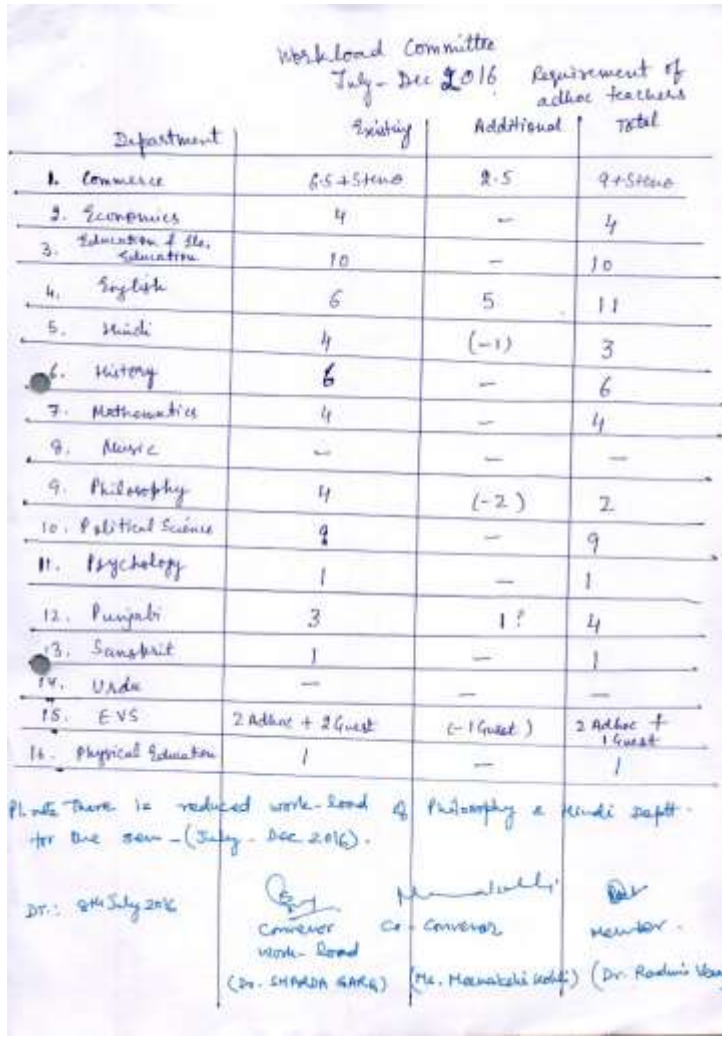 Workload Committee
July - Dec 2016 Requirement of
adhoc teachers
Department Existing Additional Total
1. Commerce 6.5 + Steno 2.5 9 + Steno
2. Economics 4 - 4
3. Education & Ele. Education 10 - 10
4. English 6 5 11
5. Hindi 4 (-1) 3
6. History 6 - 6
7. Mathematics 4 - 4
8. Music - - -
9. Philosophy 4 (-2) 2
10. Political Science 9 - 9
11. Psychology 1 - 1
12. Punjabi 3 1? 4
13. Sanskrit 1 - 1
14. Urdu - - -
15. EVS 2 Adhoc + 2 Guest (-1 Guest) 2 Adhoc + 1 Guest
16. Physical Education 1 - 1
Pl. note There is reduced work-load of Philosophy & Hindi Deptt.
for the sem - (July - Dec 2016).
DT.: 8th July 2016
Convenor Co-Convenor Member.
Work-Load
(Dr. SHARDA GARG) (Ms. Meenakshi Kohli) (Dr.